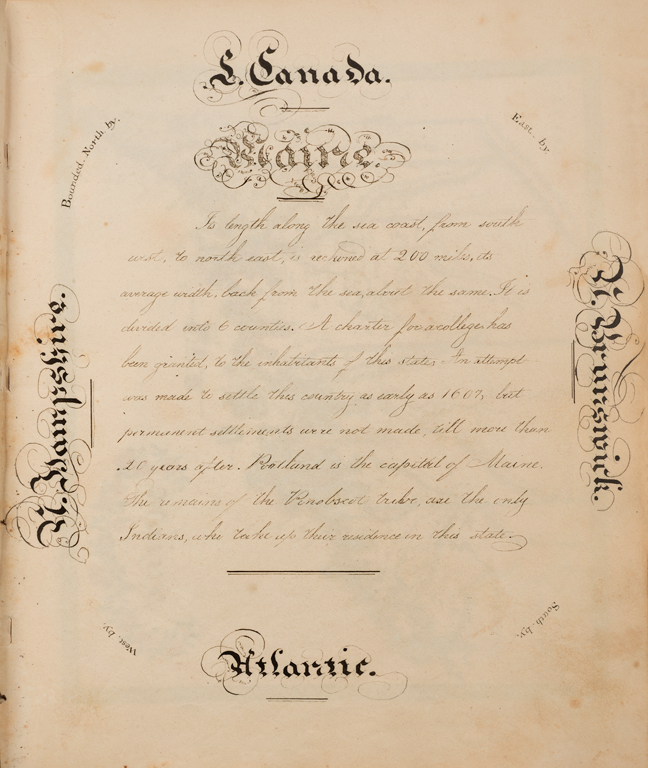 L. Canada.
Bounded North by.
East. by.
Maine.
Its length along the sea coast, from south
west, to north east, is reckoned at 200 miles, its
average width, back from the sea, about the same. It is
divided into 6 counties. A charter for a college has
been granted, to the inhabitants of this state. An attempt
was made to settle this country as early as 1607, but
permanent settlements were not made, till more than
20 years after. Portland is the capital of Maine.
The remains of the Penobscot tribe, are the only
Indians, who take up their residence in this state.
N. Hampshire.
N. Brunswick.
West. by.
South. by.
Atlantic.